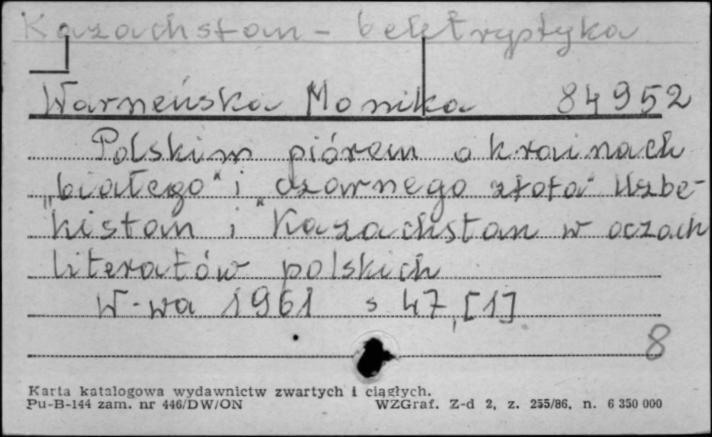 Kazachstan - beletrystyka
Warneńska Monika 84952
Polskim piórem o krainach
„białego" i „czarnego złota" Uzbe-
kistan i Kazachstan w oczach
literatów polskich
W-wa 1961 s 47, [1]
8
Karta katalogowa wydawnictw zwartych i ciągłych.
Pu-B-144 zam. nr 446/DW/ON WZGraf. Z-d 2, z. 255/86, n. 6 350 000